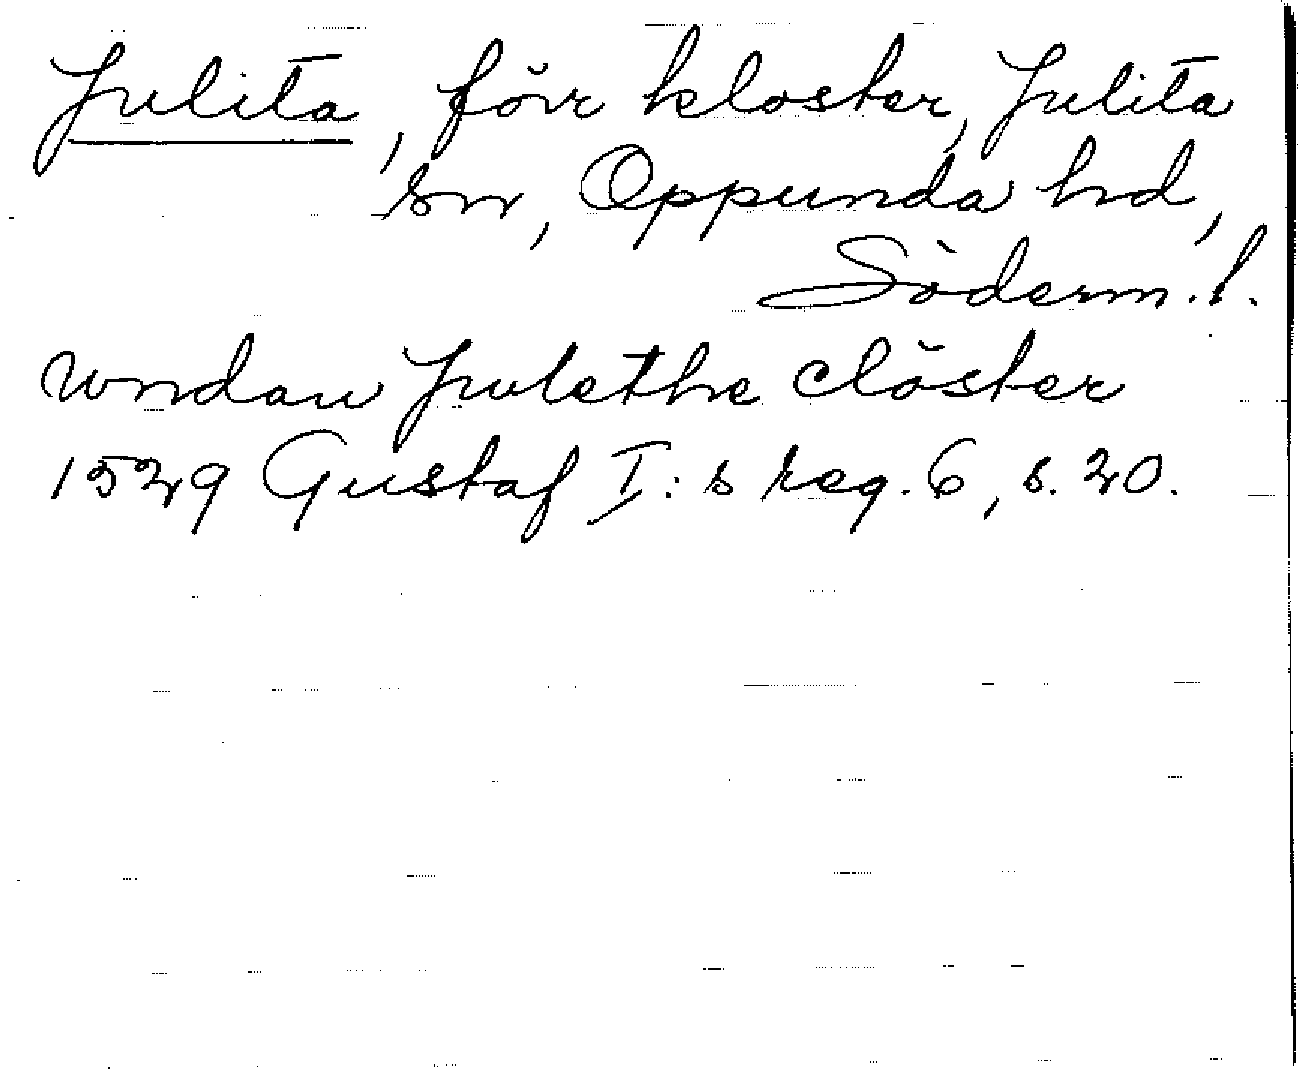 Julita, förr kloster, Julita
sn, Oppunda hd,
Söderm. l.
wndan Julethe clöster
1529 Gustaf I:s reg. 6, s. 20.